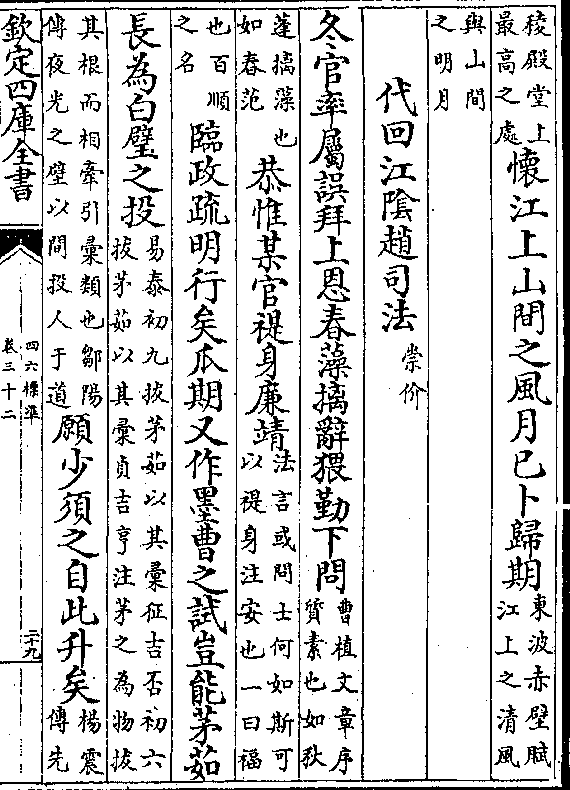 稜殿堂上
最高之處
懷江上山間之風月已卜歸期
東波赤壁賦
江上之清風
與山間
之明月
代回江陰趙司法
崇价
冬官率屬誤拜上恩春藻摛辭猥勤下問
曹植文章序
質素也如秋
蓬摛藻也
如春范
恭惟某官禔身廉靖
法言或問士何如斯可
以禔身注安也一曰福
也百順
之名
臨政疏明行矣瓜期又作墨曹之試豈能茅茹
長為白璧之投
易泰初九拔茅茹以其彙征吉否初六
拔茅茹以其彙貞吉亨注茅之為物拔
其根而相牽引彙類也鄒陽
傳夜光之璧以間投人于道
願少須之自此升矣
楊震
傳先
欽定四庫全書
四六標準
卷三十二
二十九